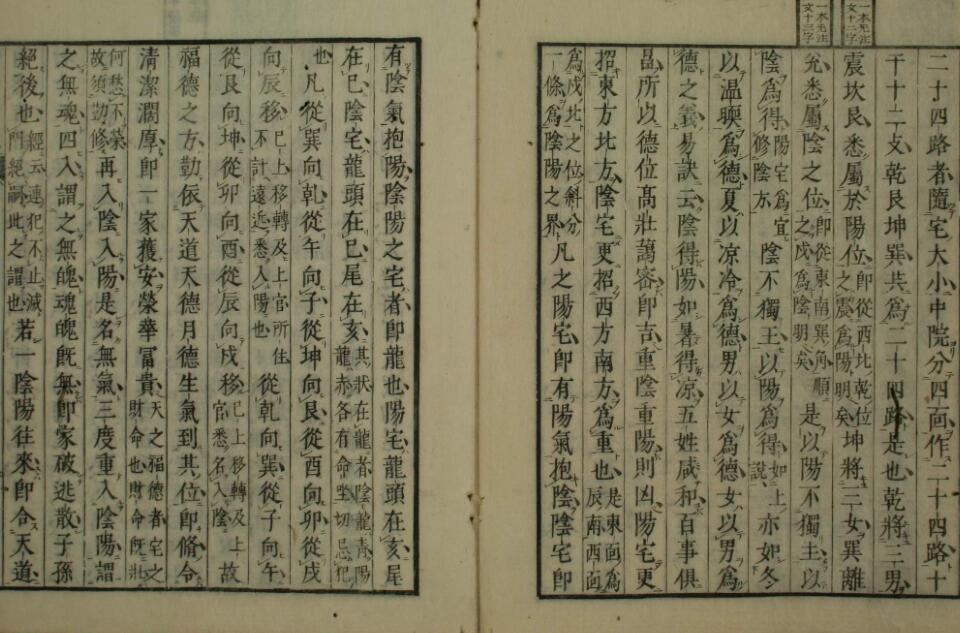 一本无注文十二字
一本无注文十三字
二十四路者隨宅大小中院分四面作二十四路十
干十二支乾艮坤巽共為二十四路是也乾將三男
震坎艮悉屬於陽位即從西北乾位之震為陽明矣坤將三女巽離
兊悉屬陰之位即從東南巽角順之戌為陰明矣是以陽不獨王以
陰為得陽宅為宜修陰方陰不獨王以陽為得如上說亦如冬
以温暖為德夏以凉冷為德男以女為德女以男為
德之義易訣云陰得陽如暑得凉五姓咸和百事俱
昌所以德位高壯藹密即吉重陰重陽則凶陽宅更
招東方北方陰宅更招西方南方為重也是東面為辰南西面
為戌北之位斜分一條為陰陽之界凡之陽宅即有陽氣抱陰陰宅即
有陰氣抱陽陰陽之宅者即龍也陽宅龍頭在亥尾
在巳陰宅龍頭在巳尾在亥其狀在龍者陰龍青陽龍赤各有命坐切忌犯
也凡從巽向乾從午向子從坤向艮從酉向卯從戌
向辰移已上移轉及上官所住不計遠近悉入陽也從乾向巽從子向午
從艮向坤從卯向酉從辰向戌移已上移轉及上官悉名入陰故
福德之方勤依天道天德月德生氣到其位即脩令
清潔濶厚即一家獲安榮華富貴天之福德者宅之財命也財命既壯
何愁不榮故須勤修再入陰入陽是名無氣三度重入陰陽謂
之無魂四入謂之無魄魂魄既無即家破逃散子孫
絕後也經云連犯不止滅門絕嗣此之謂也若一陰陽往來即合天道